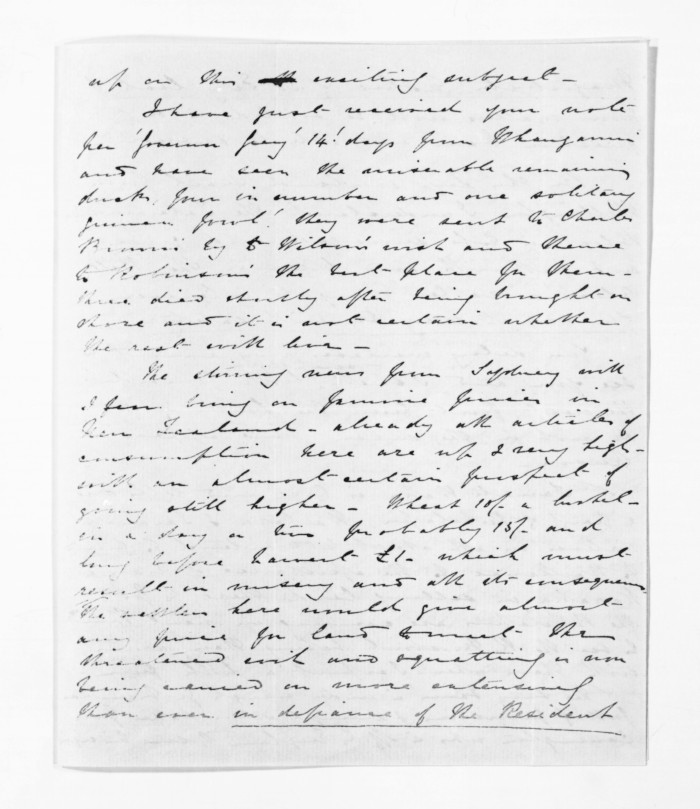 up on this exciting subject -
I have just received your note
per 'Governor Grey' 14 days from Whanganui
and have seen the miserable remaining
ducks four in number and one solitary
guinea fowl! they were sent to Charles
Brown's by Wilson's wish and thence
to Robinson's the best place for them -
three died shortly after being brought on
shore and it is not certain whether
the rest will live -
The stirring news from Sydney will
I fear bring on famine prices in
New Zealand - already all articles of
consumption here are up & very high -
with an almost certain prospect of
going still higher - Wheat 10/- a bushel -
in a day or two probably 15/- and
long before harvest £1 - which must
result in misery and all its consequences
The settlers here would give almost
any price for land to meet the
threatened evil and squatting is now
being carried on more extensively
than ever in defiance of the Resident